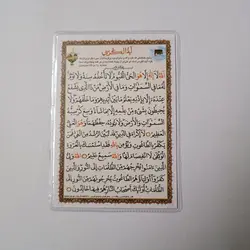 آية الكرسي
اَللّٰهُ لَا إِلٰهَ إِلَّا هُوَ الْحَيُّ الْقَيُّومُ لَا تَأْخُذُهُ سِنَةٌ وَلَا نَوْمٌ لَهُ
مَا فِي السَّمٰوَاتِ وَمَا فِي الْأَرْضِ مَنْ ذَا الَّذِي يَشْفَعُ
عِنْدَهُ إِلَّا بِإِذْنِهِ يَعْلَمُ مَا بَيْنَ أَيْدِيهِمْ وَمَا خَلْفَهُمْ وَلَا
يُحِيطُونَ بِشَيْءٍ مِنْ عِلْمِهِ إِلَّا بِمَا شَاءَ وَسِعَ كُرْسِيُّهُ
السَّمٰوَاتِ وَالْأَرْضَ وَلَا يَئُودُهُ حِفْظُهُمَا وَهُوَ الْعَلِيُّ
الْعَظِيمُ لَا إِكْرَاهَ فِي الدِّينِ قَدْ تَبَيَّنَ الرُّشْدُ مِنَ الْغَيِّ فَمَنْ
يَكْفُرْ بِالطَّاغُوتِ وَيُؤْمِنْ بِاللّٰهِ فَقَدِ اسْتَمْسَكَ بِالْعُرْوَةِ
الْوُثْقَى لَا انْفِصَامَ لَهَا وَاللّٰهُ سَمِيعٌ عَلِيمٌ اَللّٰهُ وَلِيُّ الَّذِينَ
آمَنُوا يُخْرِجُهُمْ مِنَ الظُّلُمَاتِ إِلَى النُّورِ وَالَّذِينَ
كَفَرُوا أَوْلِيَاؤُهُمُ الطَّاغُوتُ يُخْرِجُونَهُمْ مِنَ النُّورِ إِلَى
الظُّلُمَاتِ أُولٰئِكَ أَصْحَابُ النَّارِ هُمْ فِيهَا خَالِدُونَ